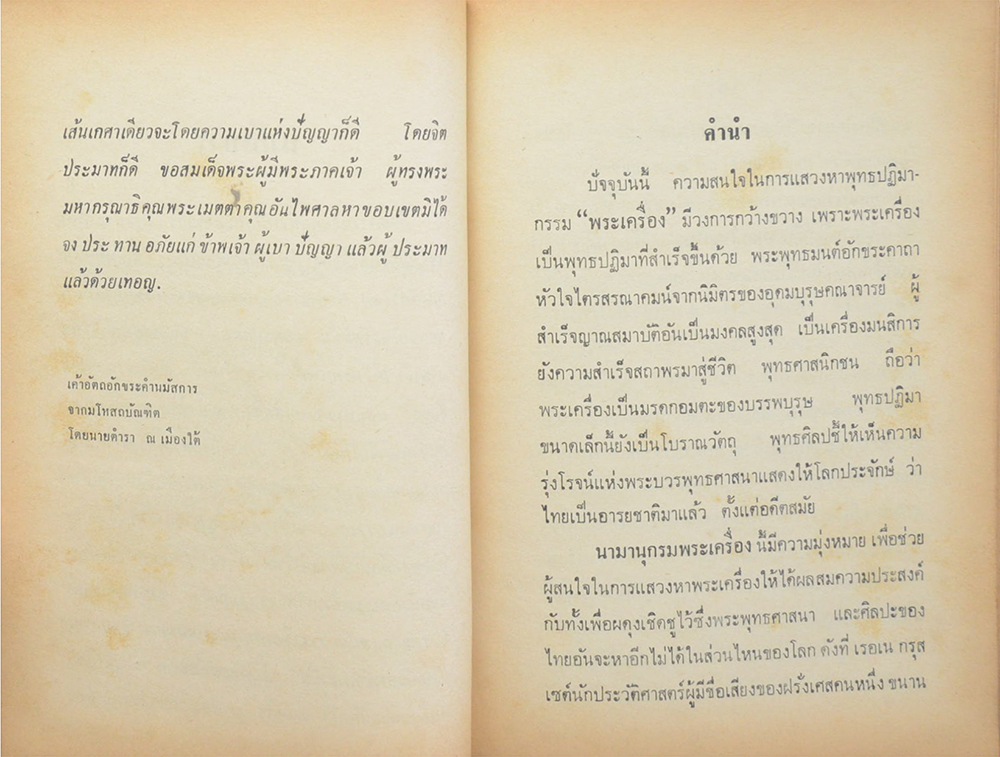 เส้นเกศาเดียวจะโดยความเบาแห่งปัญญาก็ดี โดยจิต
ประมาทก็ดี ขอสมเด็จพระผู้มีพระภาคเจ้า ผู้ทรงพระ
มหากรุณาธิคุณพระเมตตาคุณอันไพศาลหาขอบเขตมิได้
จง ประ ทาน อภัยแก่ ข้าพเจ้า ผู้เบา ปัญญา แล้วผู้ ประมาท
แล้วด้วยเทอญ.
เค้าอัตถอักขระคำนมัสการ
จากมโหสถบัณฑิต
โดยนายดำรา ณ เมืองใต้
คำนำ
ปัจจุบันนี้ ความสนใจในการแสวงหาพุทธปฏิมา-
กรรม “พระเครื่อง” มีวงการกว้างขวาง เพราะพระเครื่อง
เป็นพุทธปฏิมาที่สำเร็จขึ้นด้วย พระพุทธมนต์อักขระคาถา
หัวใจไตรสรณาคมน์จากนิมิตรของอุดมบุรุษคณาจารย์ ผู้
สำเร็จญาณสมาบัติอันเป็นมงคลสูงสุด เป็นเครื่องมนสิการ
ยังความสำเร็จสถาพรมาสู่ชีวิต พุทธศาสนิกชน ถือว่า
พระเครื่องเป็นมรดกอมตะของบรรพบุรุษ พุทธปฏิมา
ขนาดเล็กนี้ยังเป็นโบราณวัตถุ พุทธศิลปชี้ให้เห็นความ
รุ่งโรจน์แห่งพระบวรพุทธศาสนาแสดงให้โลกประจักษ์ ว่า
ไทยเป็นอารยชาติมาแล้ว ตั้งแต่อดีตสมัย
นามานุกรมพระเครื่อง นี้มีความมุ่งหมาย เพื่อช่วย
ผู้สนใจในการแสวงหาพระเครื่องให้ได้ผลสมความประสงค์
กับทั้งเพื่อผดุงเชิดชูไว้ซึ่งพระพุทธศาสนา และศิลปะของ
ไทยอันจะหาอีกไม่ได้ในส่วนไหนของโลก ดังที่ เรอเน กรุส
เซต์นักประวัติศาสตร์ผู้มีชื่อเสียงของฝรั่งเศสคนหนึ่ง ขนาน